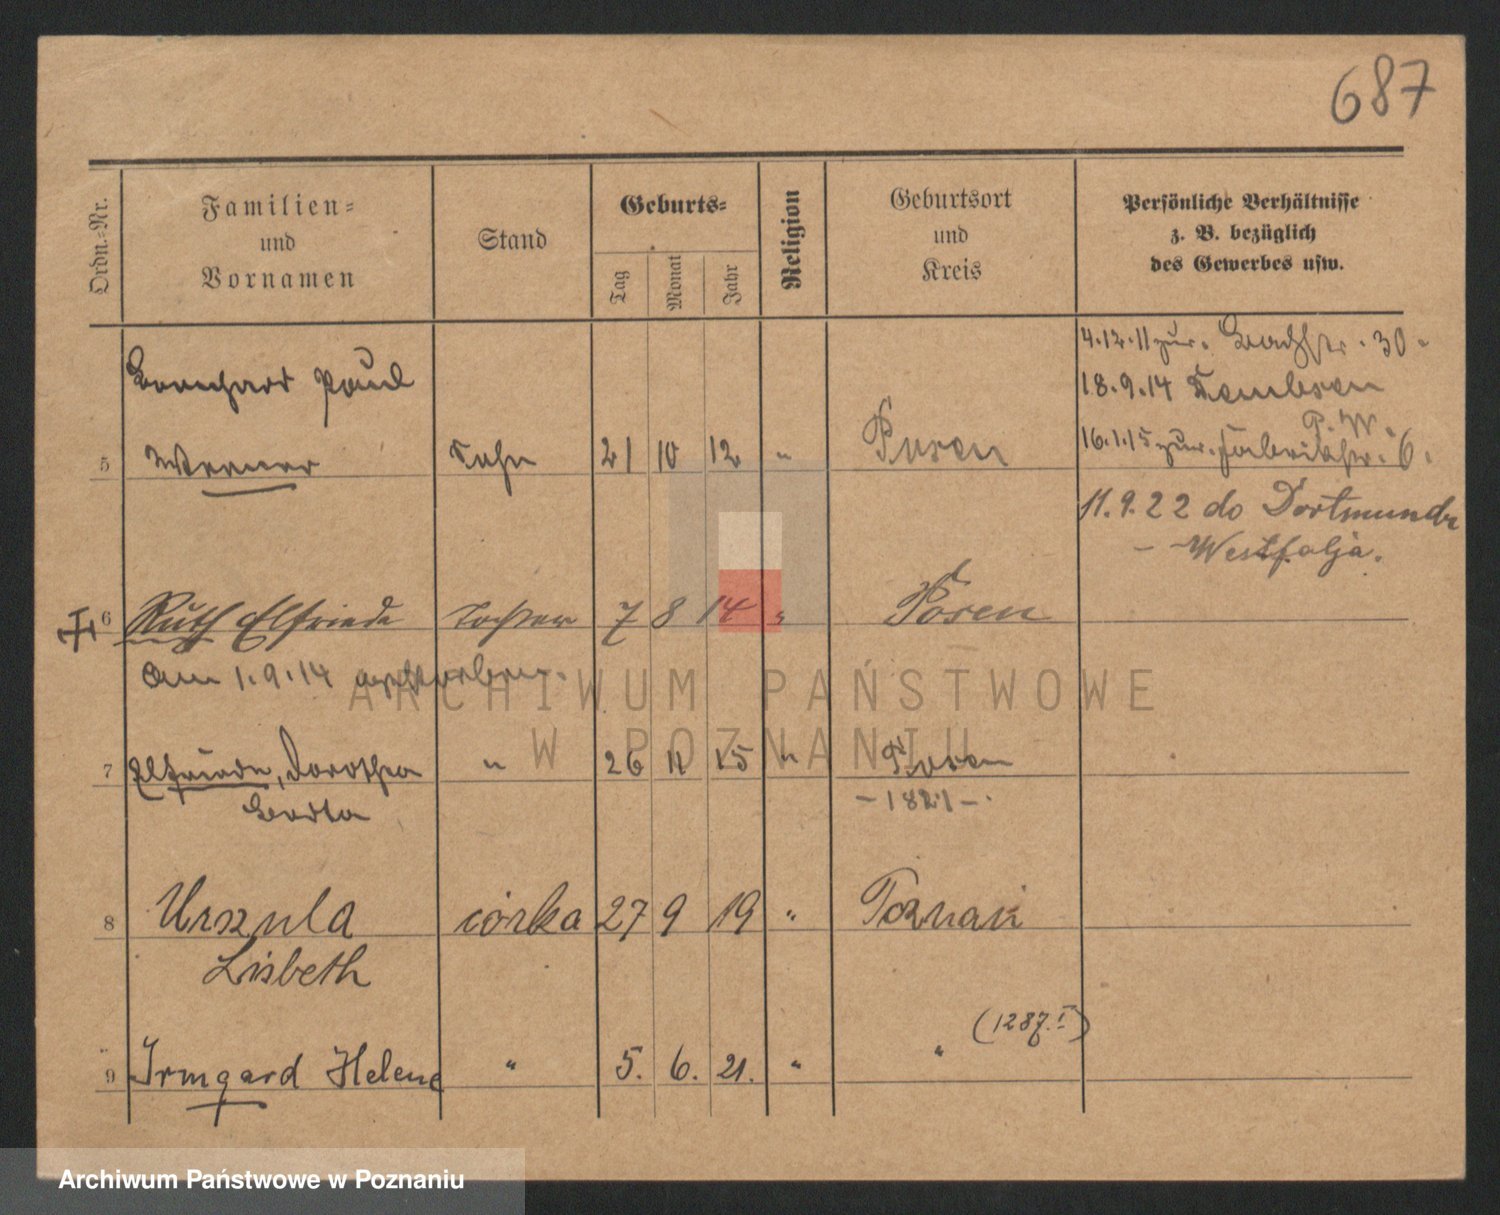 687
Ordn.=Nr.
Familien=
und
Vornamen
Stand
Geburts=
Tag
Monat
Jahr
Religion
Geburtsort
und
Kreis
Persönliche Verhältnisse
z. B. bezüglich
des Gewerbes usw.
4.12.11 zur. Bachstr. 30.
Bernhard Paul
18.9.14 Dembsen
P. W.
5 Werner Sohn 21 10 12 " Posen
16.1.15 zur. Fabrikstr. 6.
11.9.22 do Dortmundu
- Westfalja.
6 Ruth Elfriede Tochter 7 8 14 " Posen
Am 1.9.14 gestorben.
ARCHIWUM PAŃSTWOWE
W POZNANIU
7 Elfriede, Dorothea " 26 11 15 " Posen
Berta - 1821 -
8 Urszula córka 27 9 19 " Poznań
Lisbeth
(1287.I)
9 Irmgard Helene " 5. 6. 21. " "
Archiwum Państwowe w Poznaniu